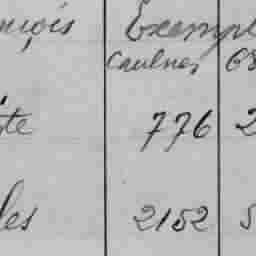 nçois Exempl
Caulnes 68
te 776 2
les 2152 5